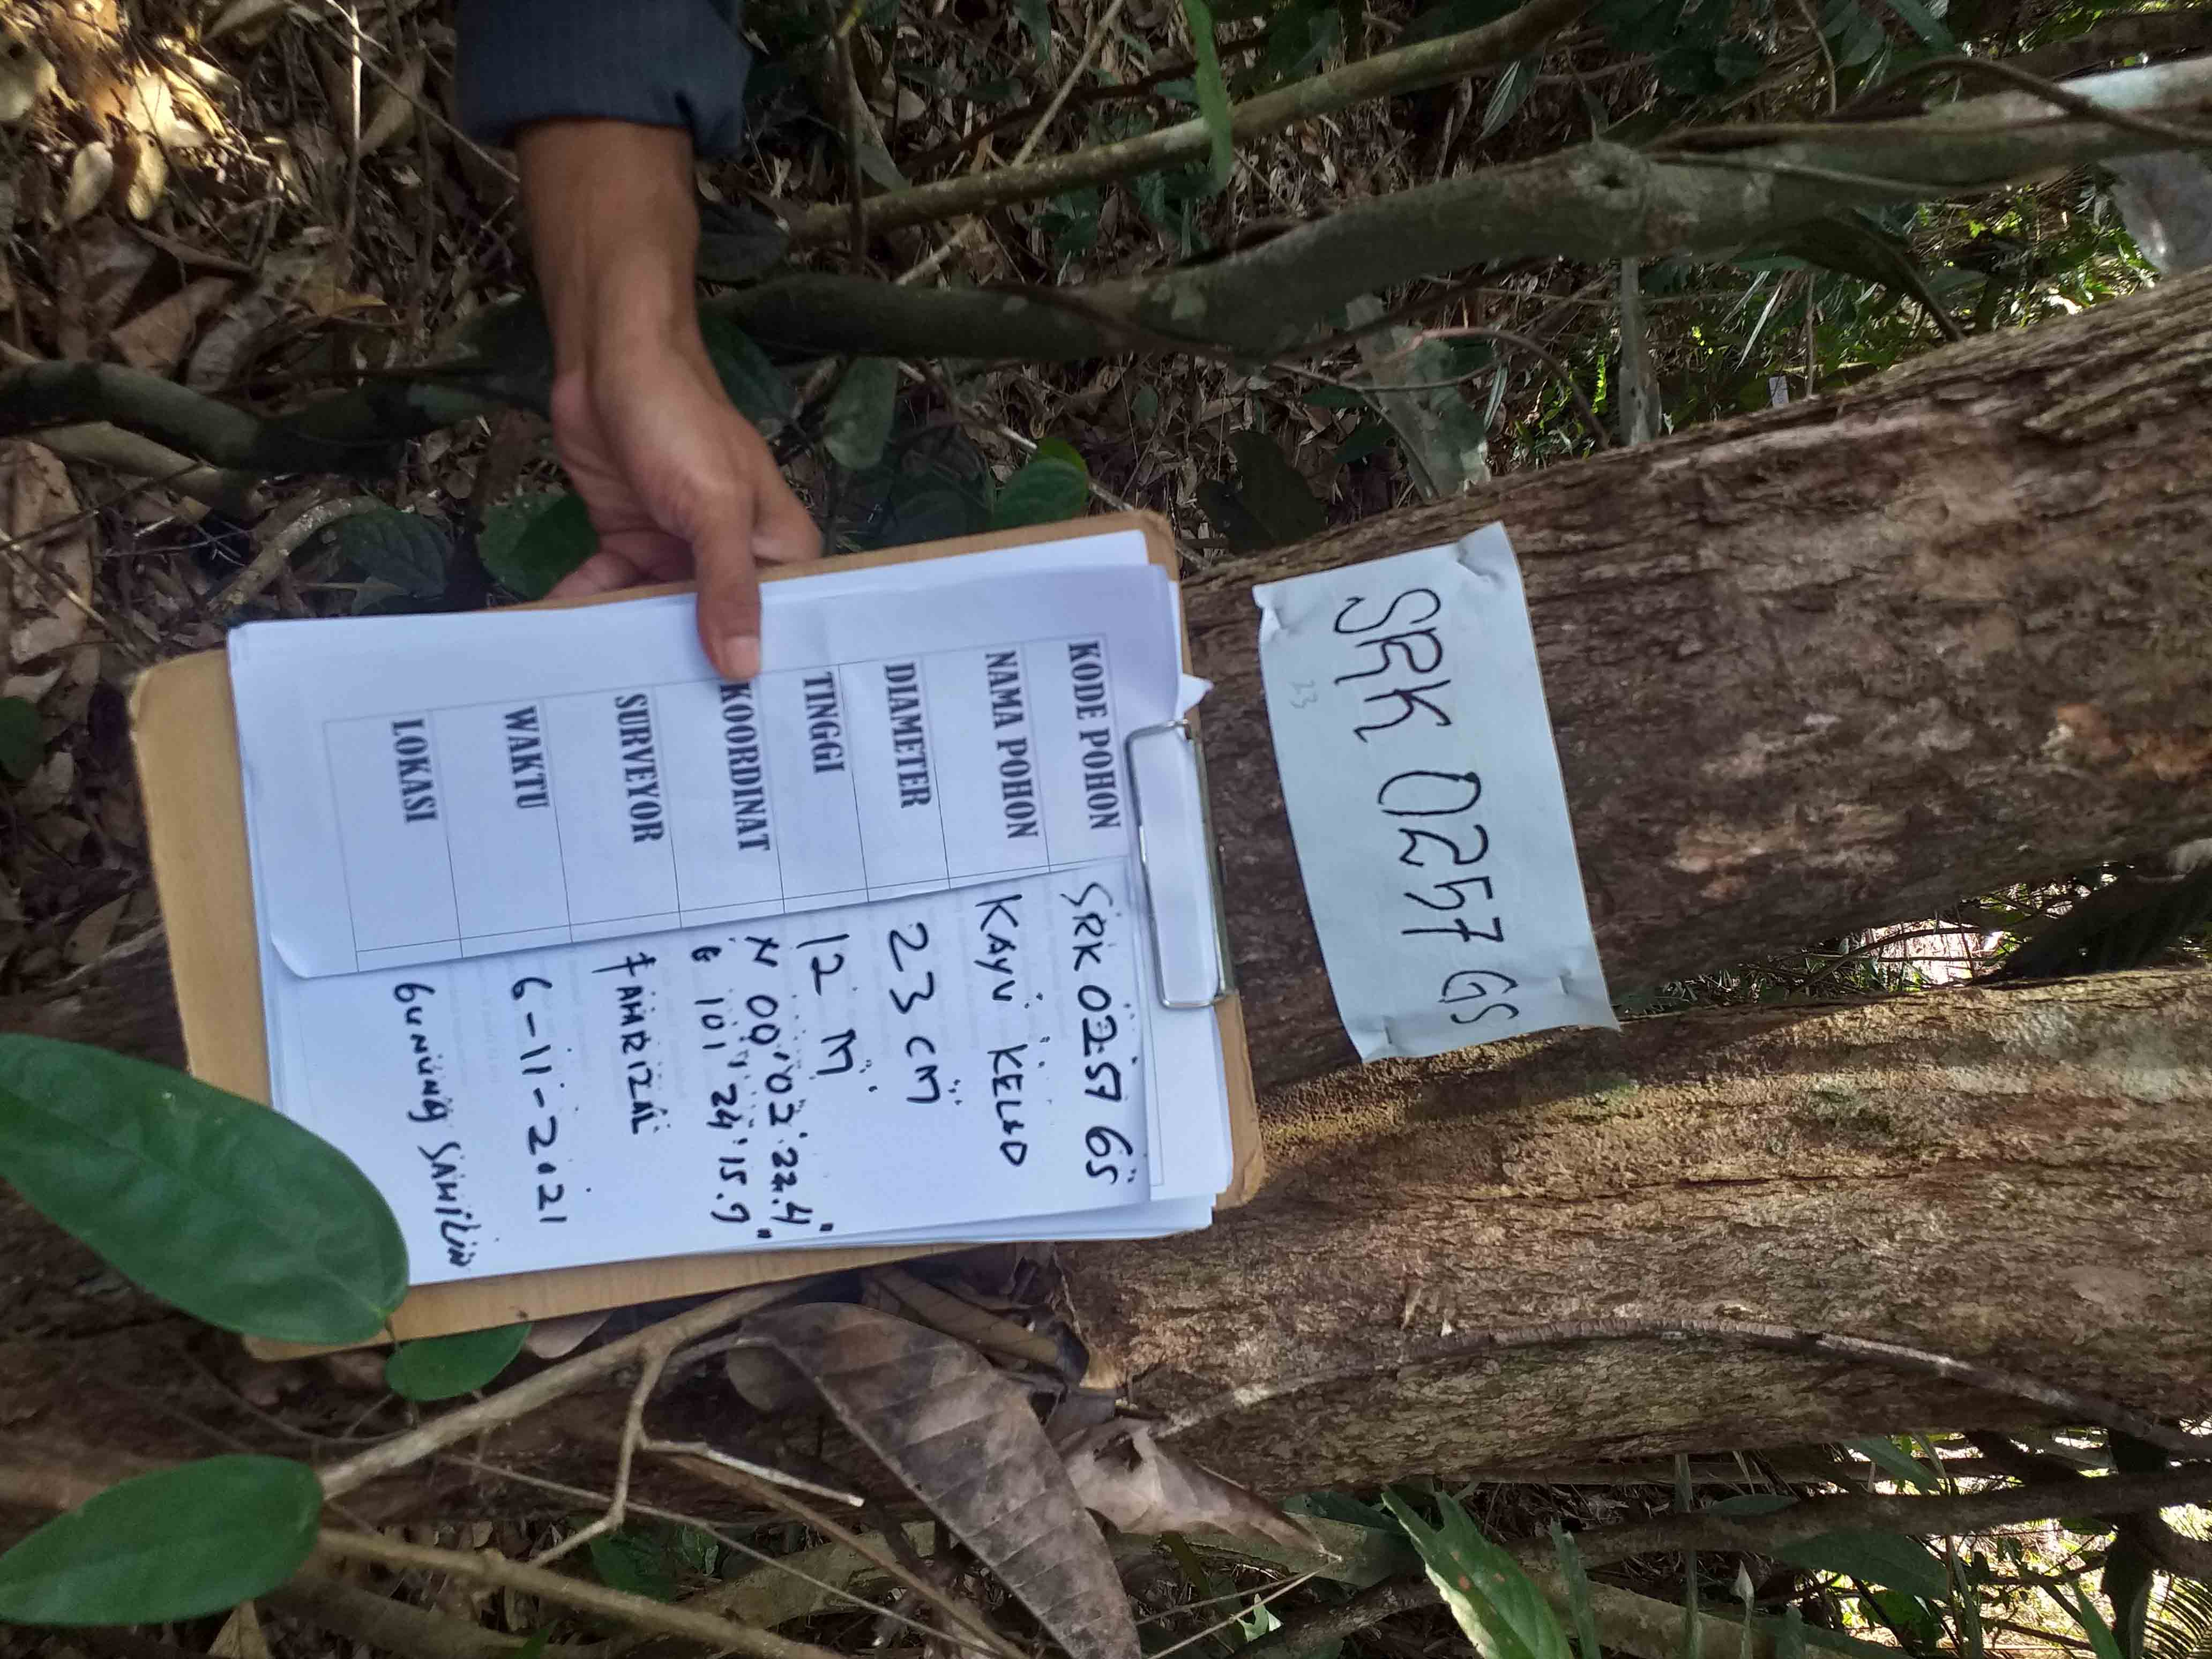 KODE POHON SRK 0257 GS
NAMA POHON KAYU KELAD
DIAMETER 23 CM
TINGGI 12 M
KOORDINAT N 00° 02' 22.4"
E 101° 24' 15.9"
SURVEYOR FAHRIZAL
WAKTU 6-11-2021
LOKASI GUNUNG SAHILAN
SRK 0257 GS
23